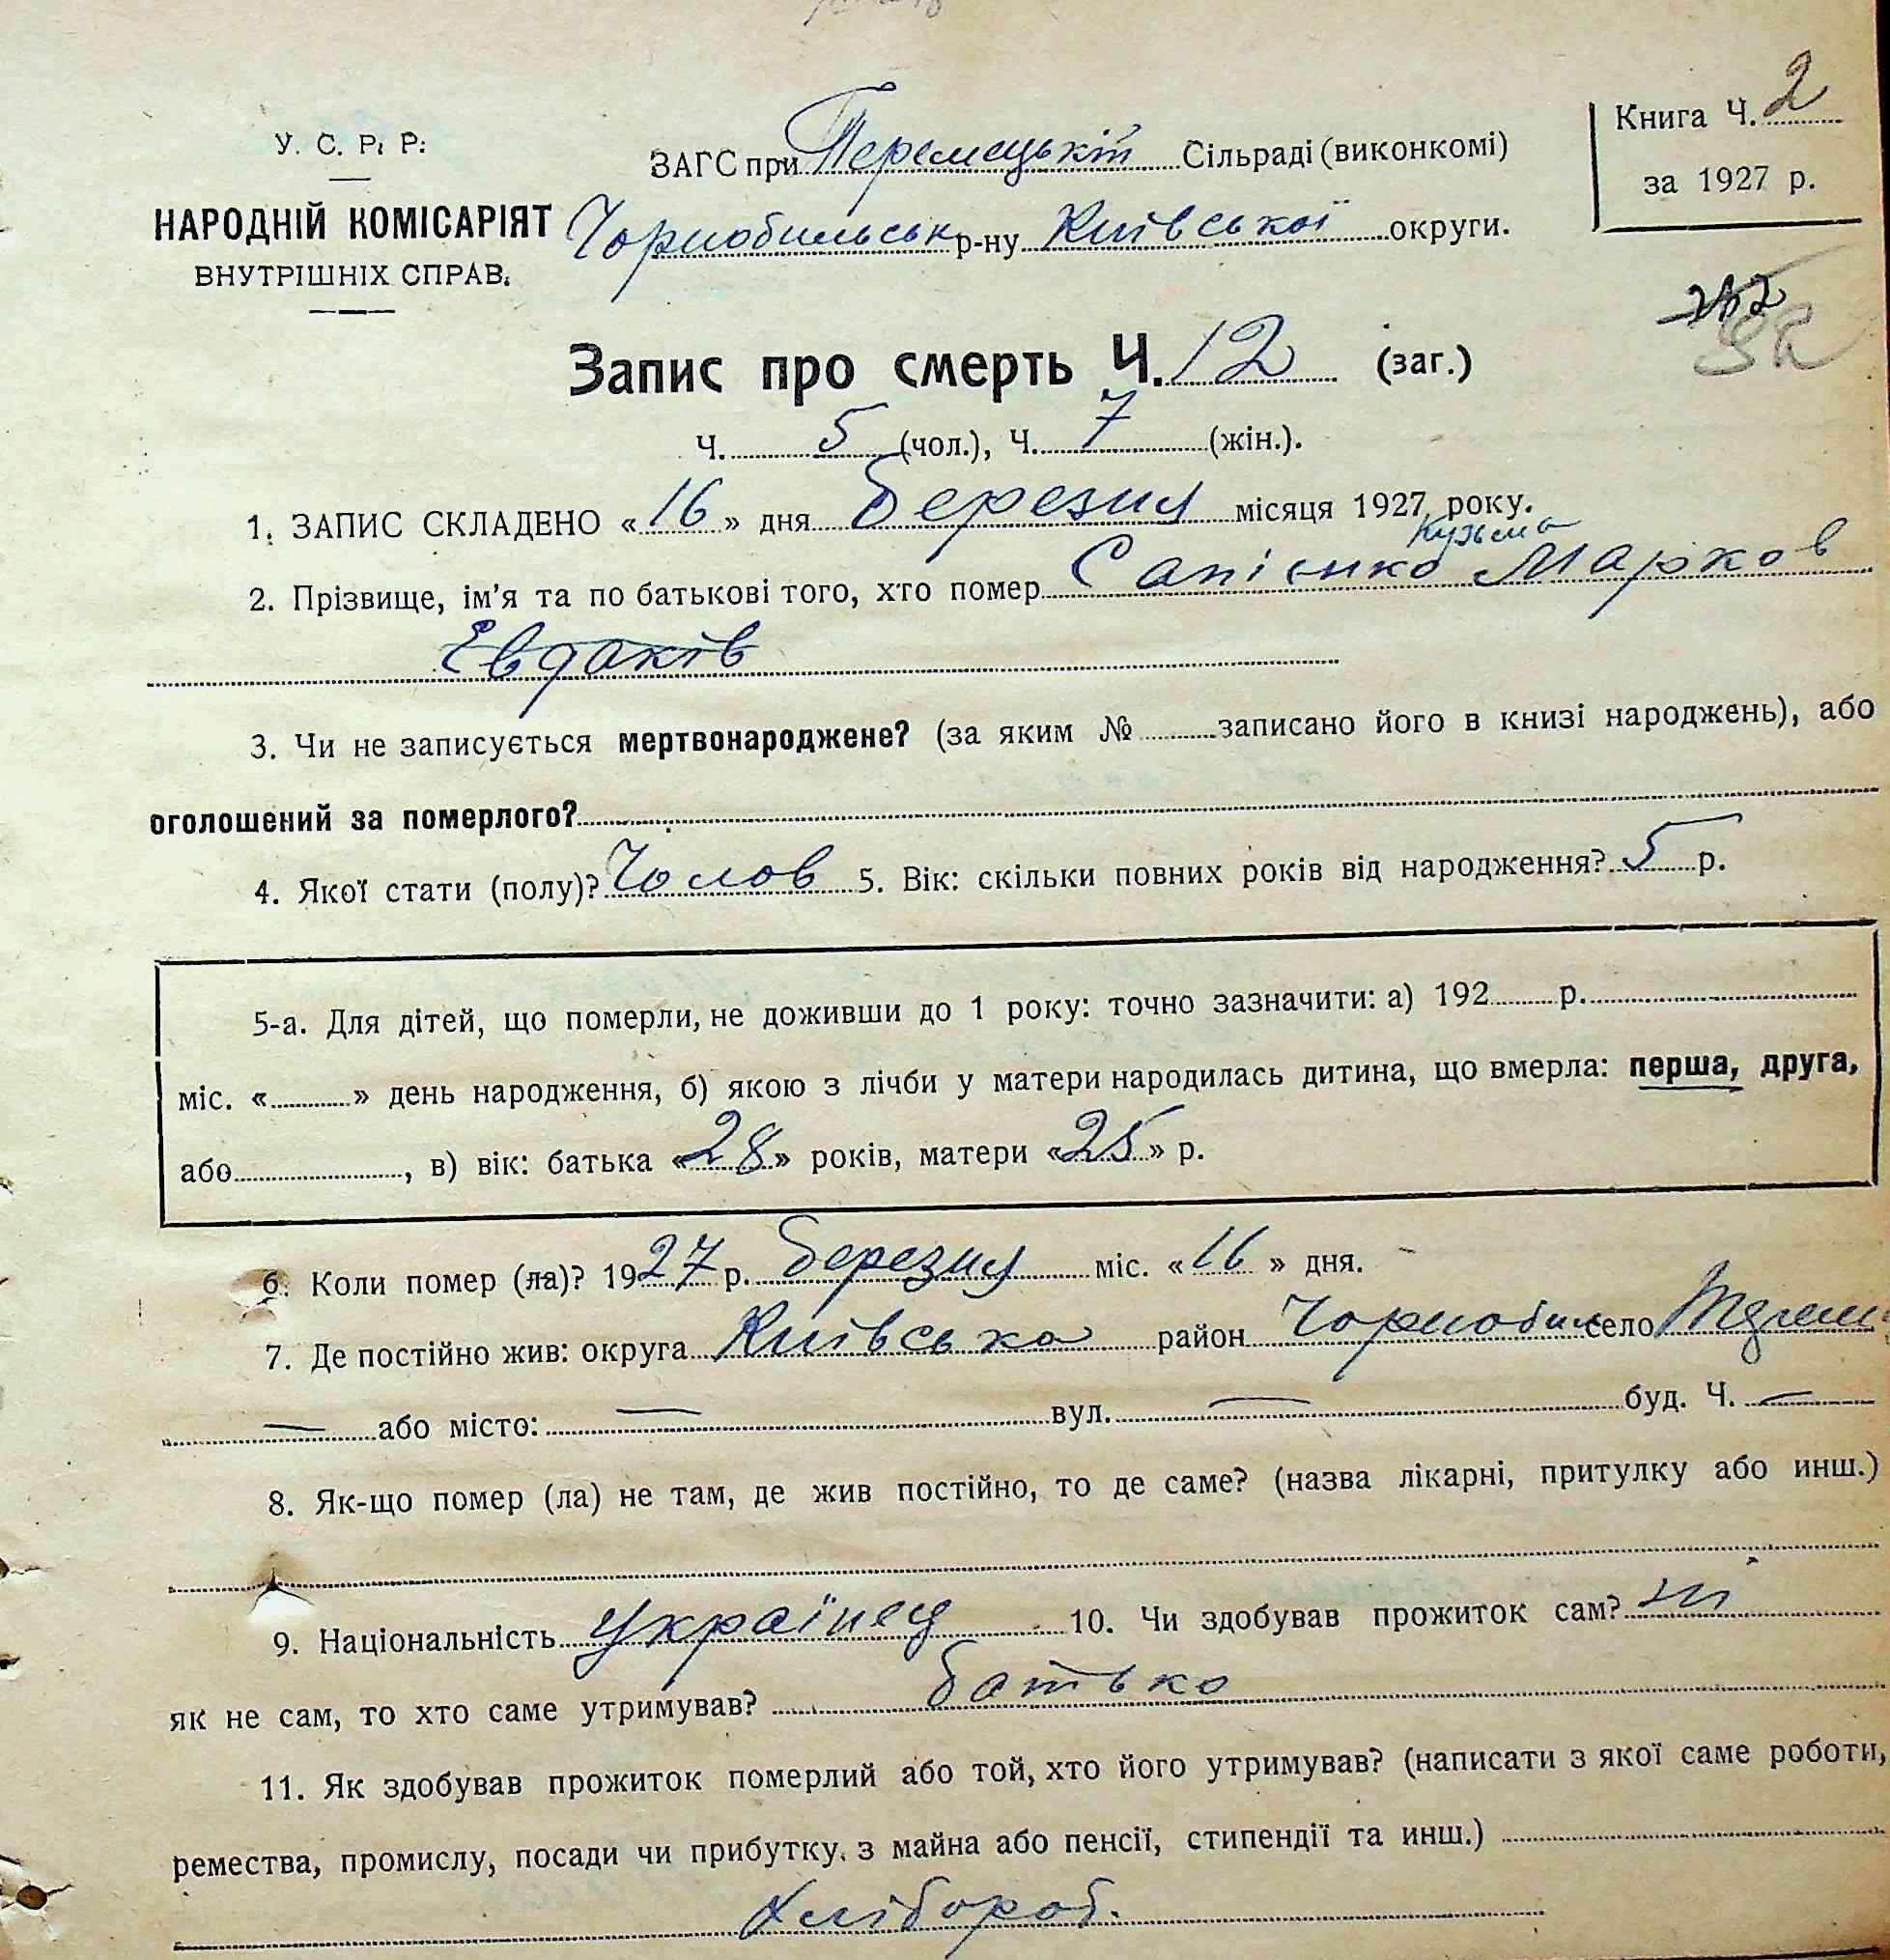 У. С. Р. Р.
НАРОДНІЙ КОМІСАРІЯТ
ВНУТРІШНІХ СПРАВ.
ЗАГС при Теремецькій Сільраді (виконкомі)
Чорнобильськ р-ну Київської округи.
Книга Ч. 2
за 1927 р.
Запис про смерть Ч. 12 (заг.)
Ч. 5 (чол.), Ч. 7 (жін.).
1. ЗАПИС СКЛАДЕНО «16» дня Березня місяця 1927 року.
Кузьма
2. Прізвище, ім'я та по батькові того, хто помер Сапієнко Марков
Евдаків
3. Чи не записується мертвонароджене? (за яким № записано його в книзі народжень), або
оголошений за померлого?
4. Якої стати (полу)? Чолов 5. Вік: скільки повних років від народження? 5 р.
5-а. Для дітей, що померли, не доживши до 1 року: точно зазначити: а) 192 р.
міс. « » день народження, б) якою з лічби у матери народилась дитина, що вмерла: перша, друга,
або , в) вік: батька «28» років, матери «25» р.
6. Коли помер (ла)? 1927 р. березня міс. «16» дня.
7. Де постійно жив: округа Київська район Чорнобил село
— або місто: — вул. — буд. Ч. —
8. Як-що помер (ла) не там, де жив постійно, то де саме? (назва лікарні, притулку або инш.)
9. Національність Українец 10. Чи здобував прожиток сам? ні
як не сам, то хто саме утримував? батько
11. Як здобував прожиток померлий або той, хто його утримував? (написати з якої саме роботи,
ремества, промислу, посади чи прибутку з майна або пенсії, стипендії та инш.)
Хлібороб.